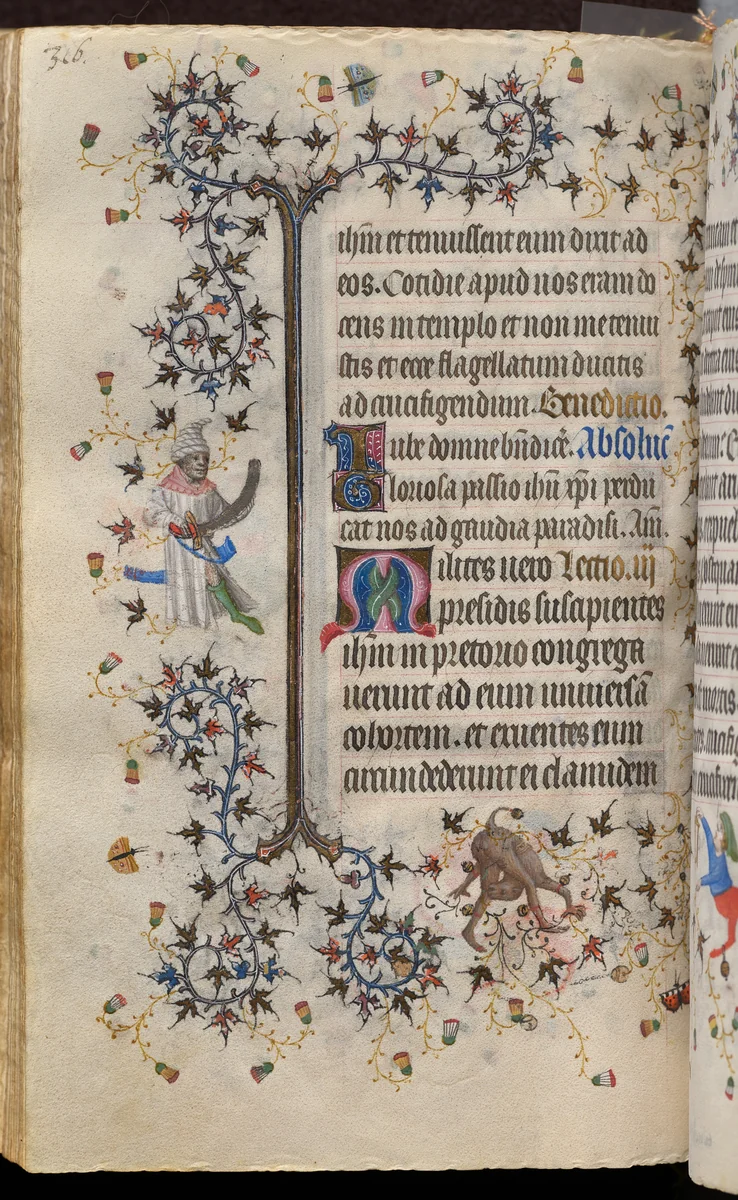 316.
ihm̄ et tenuissent eum dixit ad
eos. Cotidie apud uos eram do
cens in templo et non me tenui
stis et ecce flagellatum ducitis
ad crucifigendum. Benedictio.
Iube domne bn̄dicē. Absoluc̄
Gloriosa passio ihū xp̄i perdu
cat nos ad gaudia paradisi. Am̄.
Milites uero Lectio .iij
presidis suscipientes
ihm̄ in pretorio congrega
uerunt ad eum uniuersā
cohortem. et exuentes eum
circundederunt ei clamidem